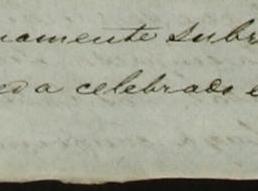 uamente subr
da celebrado e